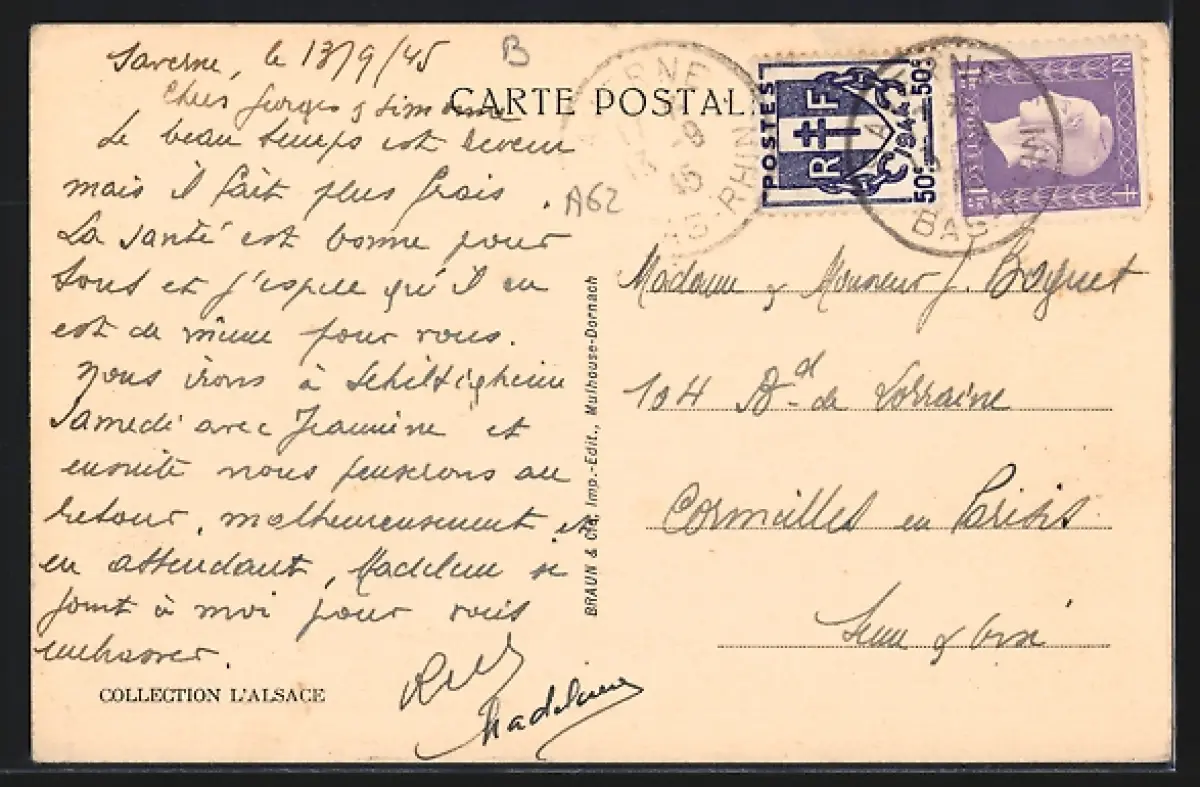 Saverne, le 13/9/45
B
Chers Georges & Simonne
CARTE POSTALE
Le beau temps est revenu
mais il fait plus frais.
La santé est bonne pour
tous et j'espère qu'il en
est de même pour vous.
Nous irons à Schiltigheim
Samedi avec Jeannine et
ensuite nous penserons au
retour, malheureusement, et
en attendant, Madeleine se
joint à moi pour vous
embrasser.
Madeleine
COLLECTION L'ALSACE
A62
BRAUN & Cie, Imp.-Edit., Mulhouse-Dornach
POSTES
RF
1944
50c
50c
POSTES
1F50
BAS-RHIN
Madame & Monsieur J. Boguet
104 Bd de Lorraine
Cormeilles en Parisis
Seine & Oise